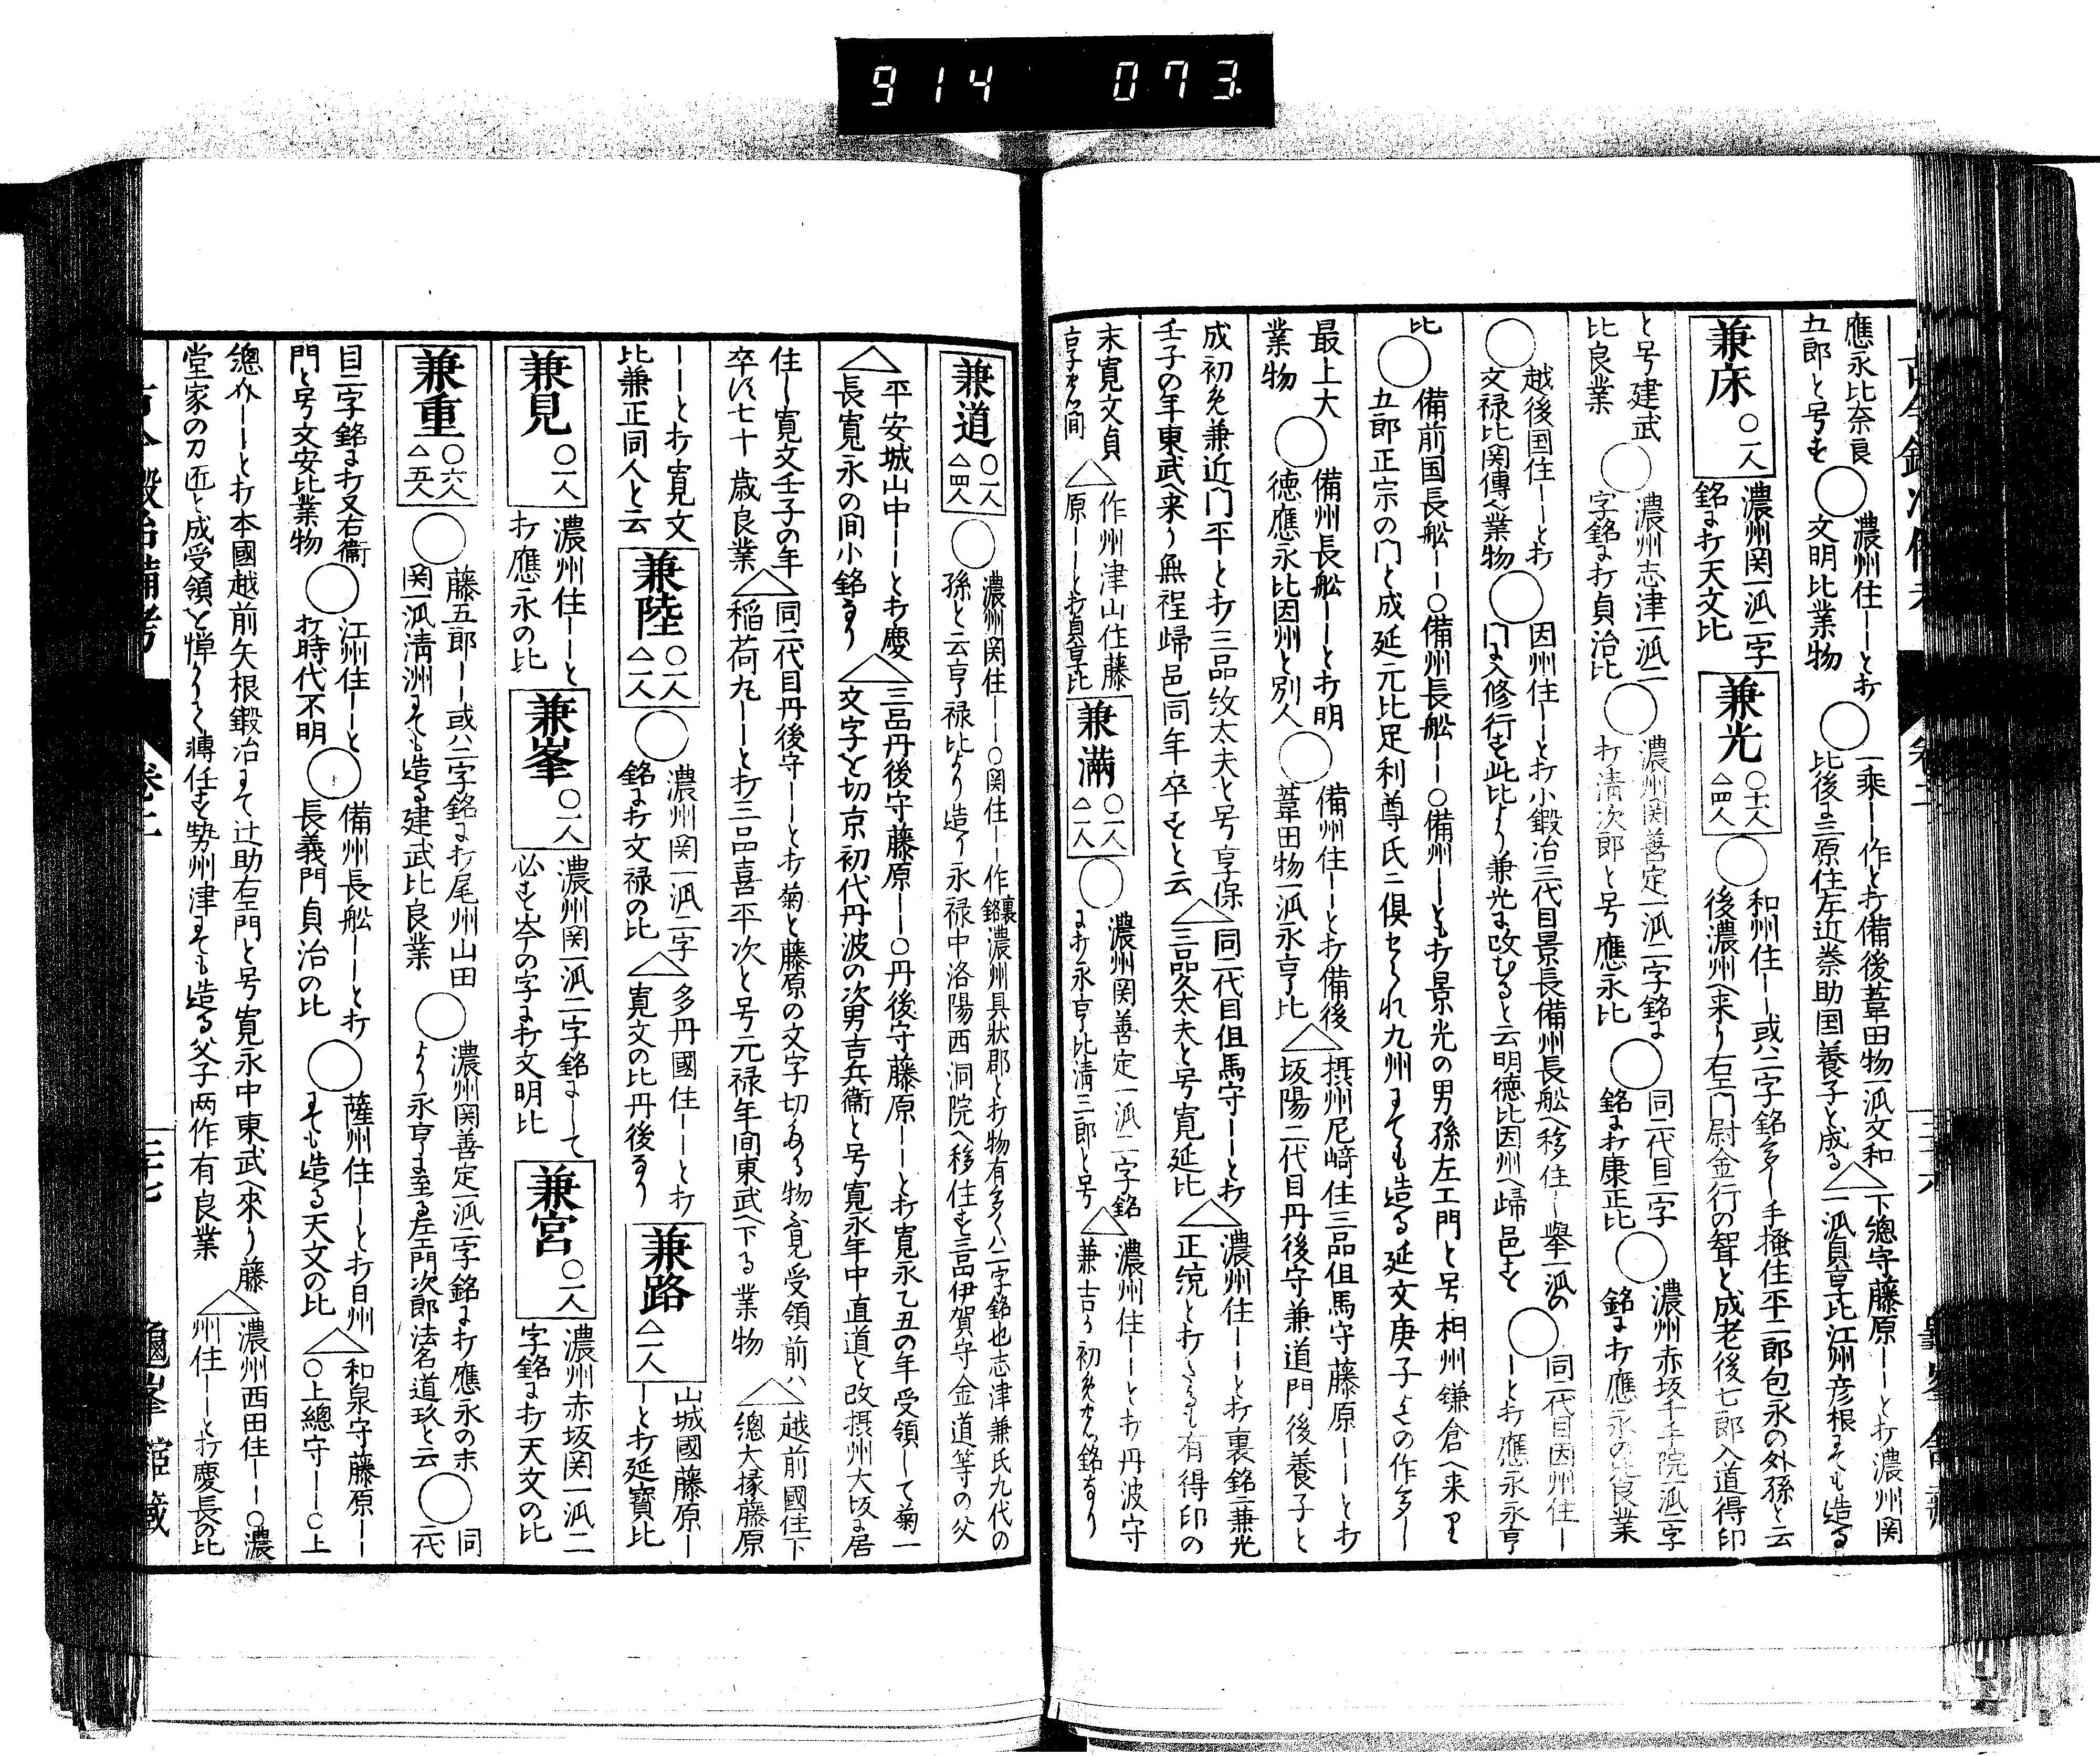 914 073
應永比奈良
五郎と号す
○
濃州住ーーと打
文明比業物
○
一乗ーー作と打備後葦田物一派文和
比後に三原住左近桊助国養子と成る
△
下總守藤原ーーと打濃州関
一派貞享比江州彦根にても造る
兼床 ○一人
濃州関一派二字
銘に打天文比
兼光 ○十一人 △四人
○
和州住ーー或ハ二字銘多し手掻住平二郎包永の外孫と云
後濃州へ来り右エ門尉金行の聟と成老後七郎入道得印
と号建武
比良業
○
濃州志津一派二
字銘に打貞治比
○
濃州関善定一派二字銘に
打清次郎と号應永比
○
同二代目二字
銘に打康正比
○
濃州赤坂千手院一派二字
銘に打應永の比良業
○
越後国住ーーと打
文禄比関傳〻業物
○
因州住ーーと打小鍛冶三代目景長備州長船へ移住し舉一派の
門に入修行す此比より兼光に改むると云明徳比因州へ歸邑す
○
同二代目因州住ー
ーと打應永永亨
比
○
備前国長船ーー○備州長船ーー○備州ーーとも打景光の男孫左エ門と号相州鎌倉へ来り
五郎正宗の門と成延元比足利尊氏ニ倶せられ九州にても造る延文庚子よの作多し
最上大
業物
○
備州長船ーーと打明
徳應永比因州と別人
○
備州住ーーと打備後
葦田物一派永亨比
△
摂州尼﨑住三品但馬守藤原ーーと打
坂陽二代目丹後守兼道門後養子と
成初め兼近門平と打三品攽太夫と号享保
壬子の年東武へ来り無裎歸邑同年卒すと云
△
同二代目但馬守ーーと打
三品久太夫と号寛延比
△
濃州住ーーと打裏銘ニ兼光
正銃と打さるも有得印の
末寛文貞
△
作州津山住藤
原ーーと打貞享比
兼滿 ○一人 △二人
○
濃州関善定一派二字銘
に打永亨比清三郎と号
△
濃州住ーーと打丹波守
兼吉り初めから銘なり
兼道 ○一人 △四人
○
濃州関住ーー○関住ーー作裏銘濃州具狀郡と打物有多くハ二字銘也志津兼氏九代の
孫と云亨禄比より造り永禄中洛陽西洞院へ移住す三品伊賀守金道等の父
△
平安城山中ーーと打慶
長寛永の間小銘なり
△
三品丹後守藤原ーー○丹後守藤原ーーと打寛永乙丑の年受領して菊一
文字を切京初代丹波の次男吉兵衞と号寛永年中直道と改摂州大坂に居
住し寛文壬子の年
卒ス七十歳良業
△
同二代目丹後守ーーと打菊と藤原の文字切ある物ゟ見受領前ハ
稲荷丸ーーと打三品喜平次と号元禄年间東武へ下る業物
△
越前國住下
總大掾藤原
ーーと打寛文
比兼正同人と云
兼陸 ○一人 △一人
○
濃州関一派二字
銘に打文禄の比
△
多丹國住ーーと打
寛文の比丹後なり
兼路 △一人
山城國藤原ー
ーと打延寶比
兼見 ○一人
濃州住ーーと
打應永の比
兼峯 ○一人
濃州関一派二字銘にして
必す峯の字に打文明比
兼宮 ○一人
濃州赤坂関一派二
字銘に打天文の比
兼重 ○六人 △五人
○
藤五郎ーー或ハ二字銘に打尾州山田
関一派淸洲にても造る建武比良業
○
濃州関善定一派二字銘に打應永の末
より永亨に至る左エ門次郎法名道玖と云
○
同二代
目二字銘に打又右衞
門と号文安比業物
○
江州住ーーと
打時代不明
○
備州長船ーーと打
長義門貞治の比
○
薩州住ーーと打日州
にても造る天文の比
△
和泉守藤原ーー
○上總守ーー○上
總介ーーと打本國越前矢根鍛冶にて辻助右エ門と号寛永中東武へ來り藤
堂家の刀匠と成受領を憚り轉任す勢州津にても造る父子両作有良業
△
濃州西田住ーー○濃
州住ーーと打慶長の比